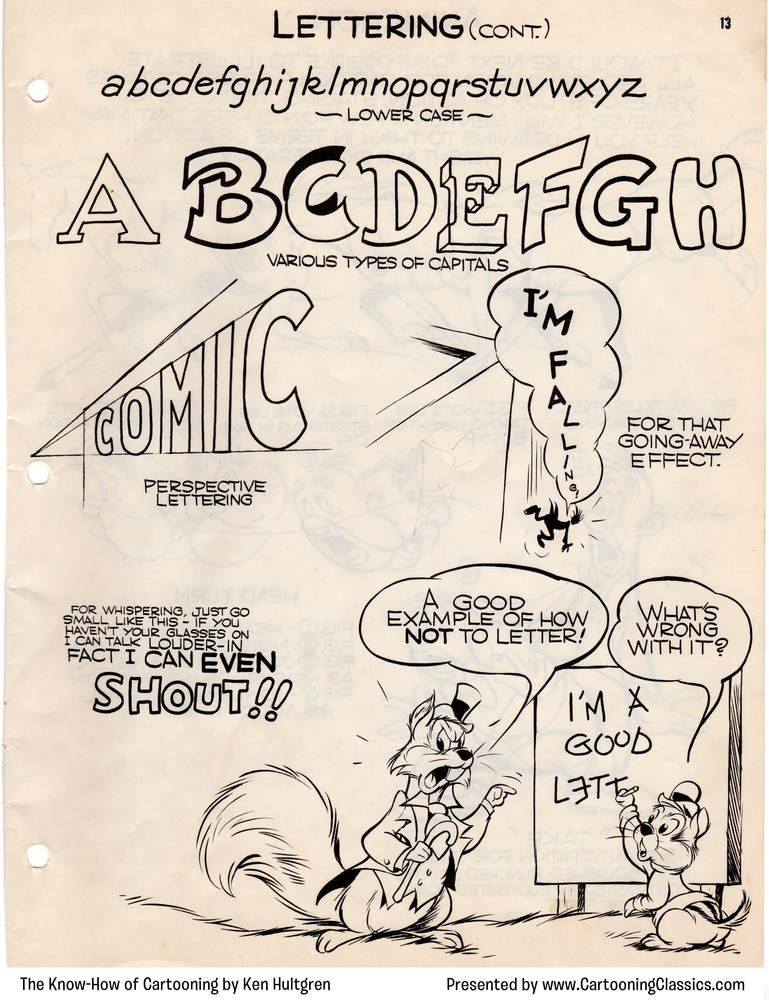 LETTERING (CONT.)
13
abcdefghijklmnopqrstuvwxyz
~ LOWER CASE ~
A B C D E F G H
VARIOUS TYPES OF CAPITALS
COMIC
PERSPECTIVE
LETTERING
I'M
FALLING!
FOR THAT
GOING-AWAY
EFFECT.
FOR WHISPERING, JUST GO
SMALL LIKE THIS - IF YOU
HAVEN'T YOUR GLASSES ON
I CAN TALK LOUDER-IN
FACT I CAN EVEN
SHOUT!!
A GOOD
EXAMPLE OF HOW
NOT TO LETTER!
WHAT'S
WRONG
WITH IT?
I'M A
GOOD
LETT
The Know-How of Cartooning by Ken Hultgren
Presented by www.CartooningClassics.com